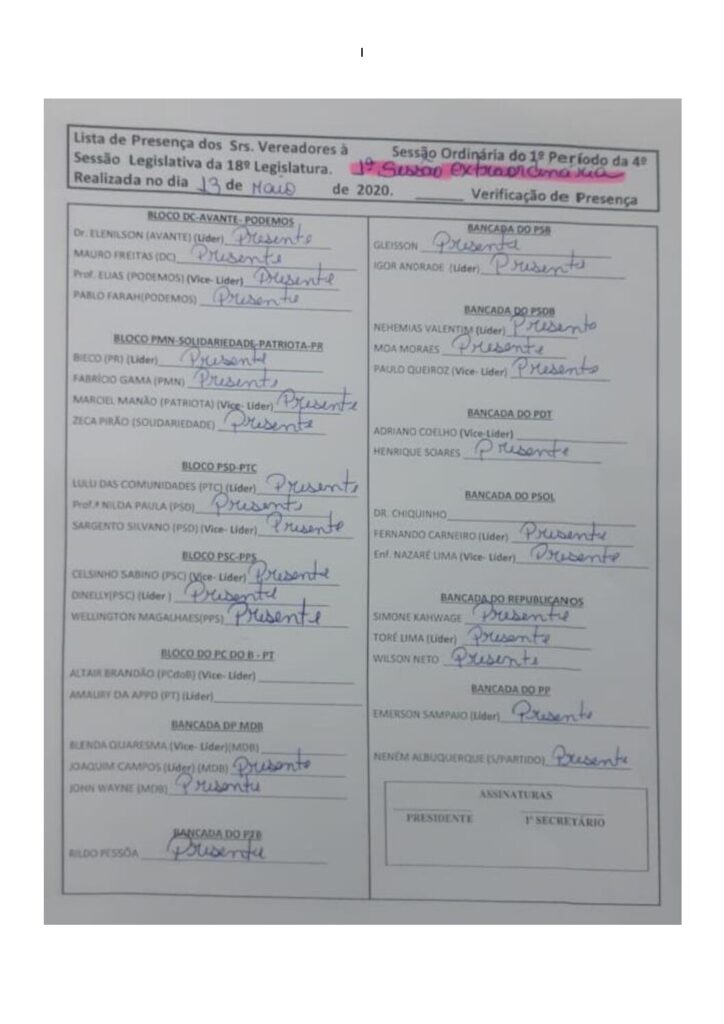 Lista de Presença dos Srs. Vereadores à Sessão Ordinária do 1º Período da 4º
Sessão Legislativa da 18º Legislatura. 1ª Sessão extraordinária
Realizada no dia 13 de Maio de 2020. ______ Verificação de Presença
BLOCO DC-AVANTE- PODEMOS
Dr. ELENILSON (AVANTE) (Líder) Presente
MAURO FREITAS (DC) Presente
Prof. ELIAS (PODEMOS) (Vice- Líder) Presente
PABLO FARAH(PODEMOS) Presente
BLOCO PMN-SOLIDARIEDADE-PATRIOTA-PR
BIECO (PR) (Líder) Presente
FABRÍCIO GAMA (PMN) Presente
MARCIEL MANÃO (PATRIOTA) (Vice- Líder) Presente
ZECA PIRÃO (SOLIDARIEDADE) Presente
BLOCO PSD-PTC
LULU DAS COMUNIDADES (PTC) (Líder) Presente
Prof.ª NILDA PAULA (PSD) Presente
SARGENTO SILVANO (PSD) (Vice- Líder) Presente
BLOCO PSC-PPS
CELSINHO SABINO (PSC) (Vice- Líder) Presente
DINELLY(PSC) (Líder ) Presente
WELLINGTON MAGALHAES(PPS) Presente
BLOCO DO PC DO B - PT
ALTAIR BRANDÃO (PCdoB) (Vice- Líder)
AMAURY DA APPD (PT) (Líder)
BANCADA DP MDB
BLENDA QUARESMA (Vice- Líder)(MDB)
JOAQUIM CAMPOS (Líder) (MDB) Presente
JOHN WAYNE (MDB) Presente
BANCADA DO PTB
RILDO PESSÔA Presente
BANCADA DO PSB
GLEISSON Presente
IGOR ANDRADE (Líder) Presente
BANCADA DO PSDB
NEHEMIAS VALENTIM (Líder) Presente
MOA MORAES Presente
PAULO QUEIROZ (Vice- Líder) Presente
BANCADA DO PDT
ADRIANO COELHO (Vice-Líder)
HENRIQUE SOARES Presente
BANCADA DO PSOL
DR. CHIQUINHO
FERNANDO CARNEIRO (Líder) Presente
Enf. NAZARÉ LIMA (Vice- Líder) Presente
BANCADA DO REPUBLICANOS
SIMONE KAHWAGE Presente
TORÉ LIMA (Líder) Presente
WILSON NETO Presente
BANCADA DO PP
EMERSON SAMPAIO (Líder) Presente
NENÉM ALBUQUERQUE (S/PARTIDO) Presente
ASSINATURAS
PRESIDENTE 1º SECRETÁRIO